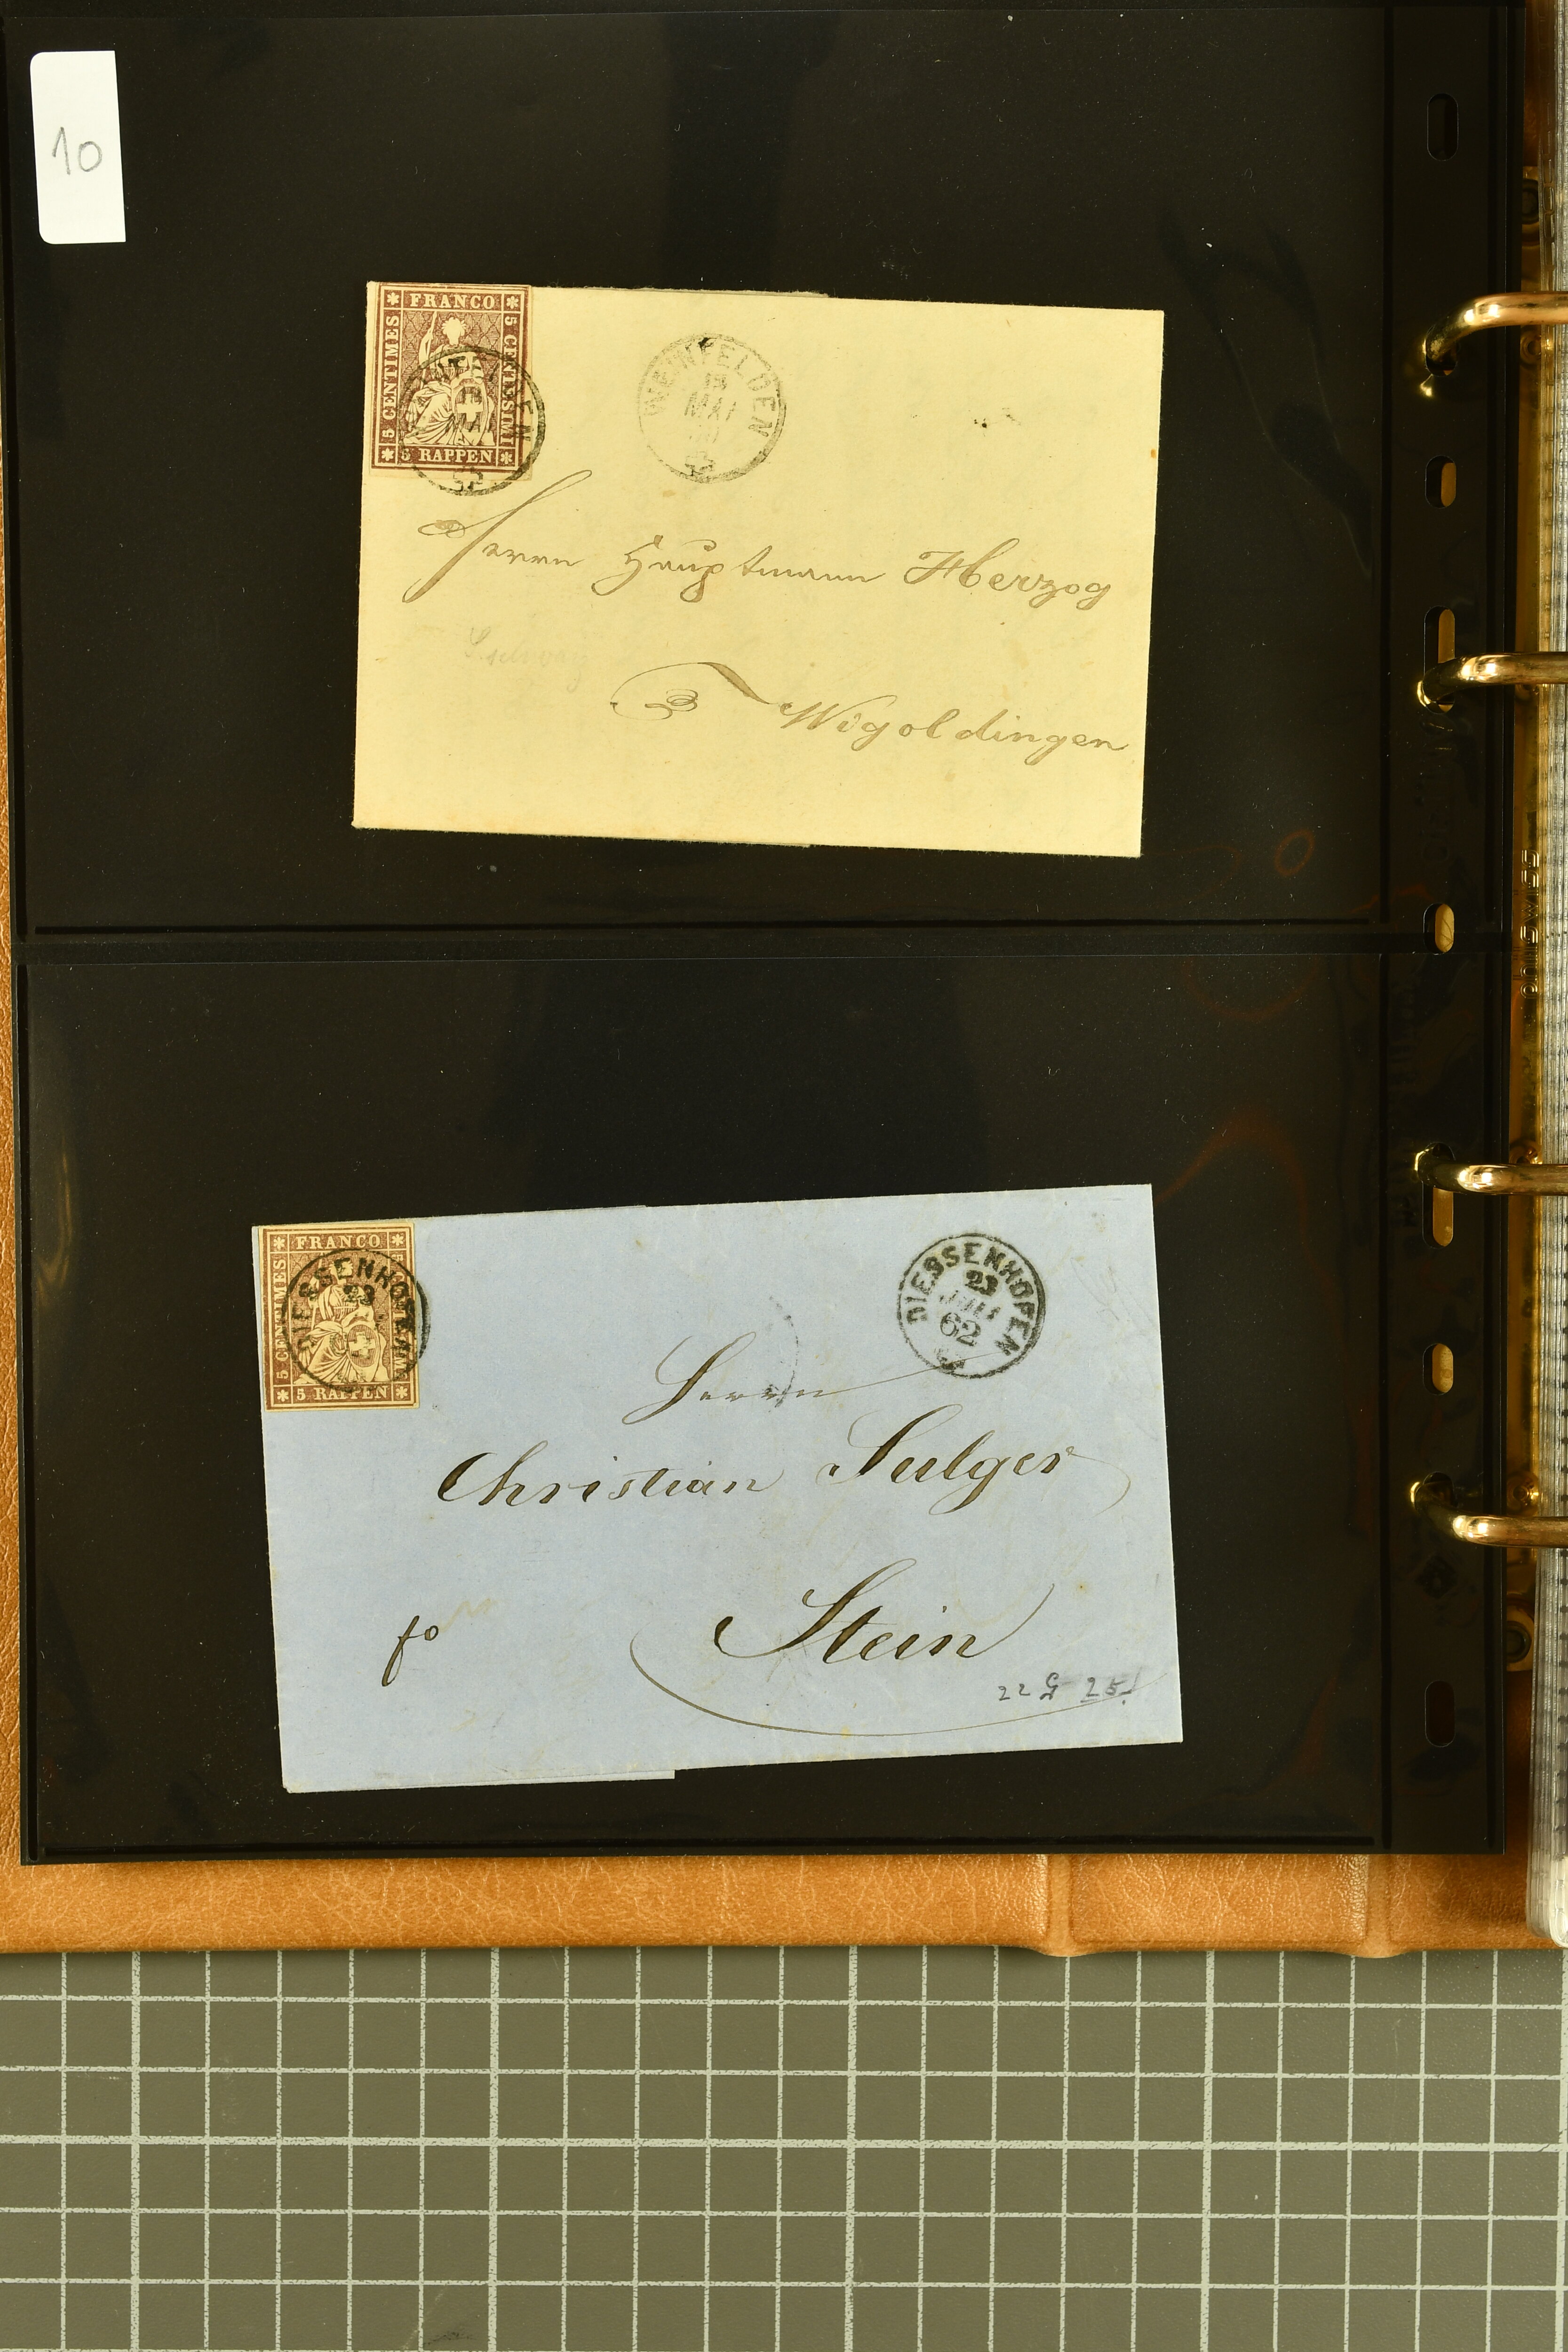 10
FRANCO
5 CENTIMES
5 CENTESIMI
5 RAPPEN
WEINFELDEN
MAI
Herrn Hauptmann Herzog
Wigoldingen
FRANCO
5 CENTIMES
5 RAPPEN
DIESSENHOFEN
23
DIESSENHOFEN
23
JULI
62
Herrn
Christian Sulger
fo
Stein
22 G 25.